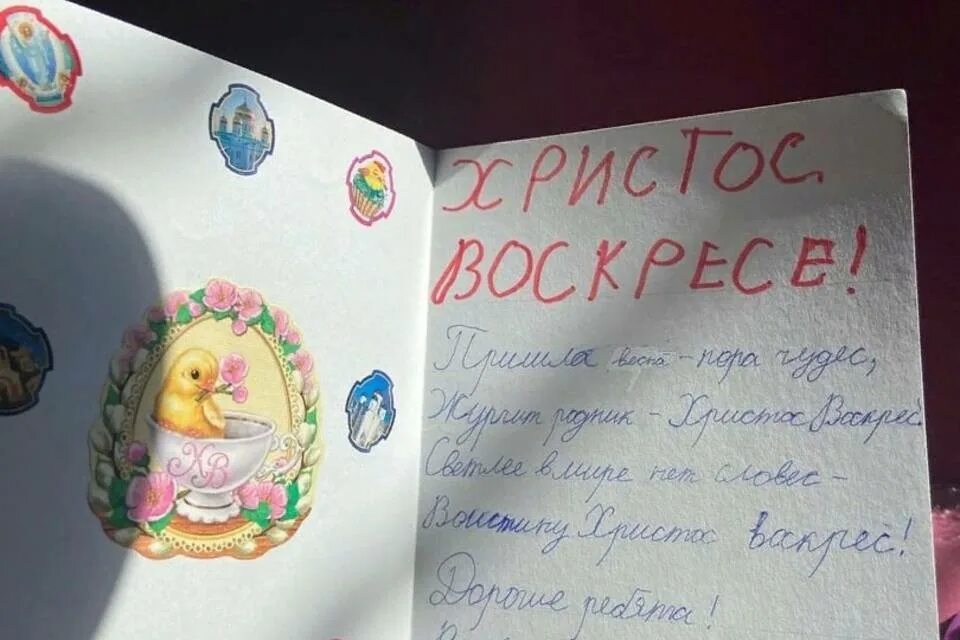 ХВ
ХРИСТОС
ВОСКРЕСЕ!
Пришла весна - пора чудес,
Журчит родник - Христос Воскрес
Светлее в мире нет словес -
Воистину Христос воскрес!
Дорогие ребята!